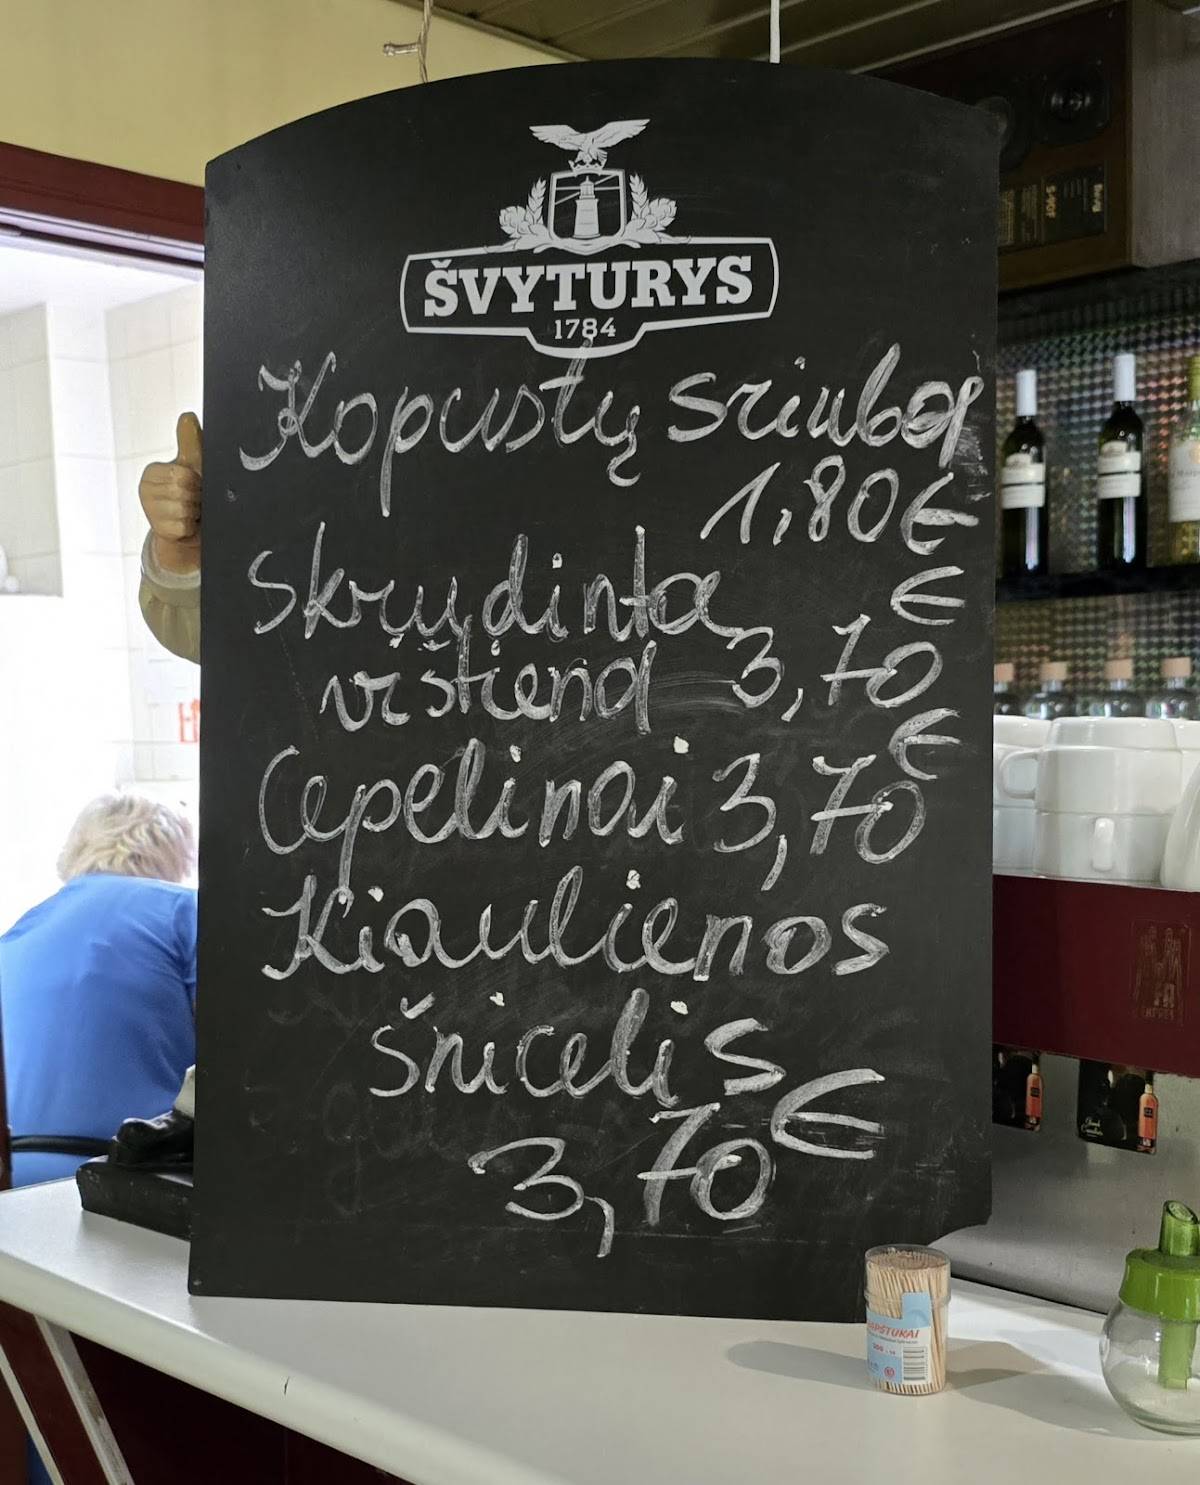 ŠVYTURYS
1784
Kopustų sriuba
1,80€
Skrudinta
vištiena 3,70 €
Cepelinai 3,70 €
Kiaulienos
šnicelis
3,70 €